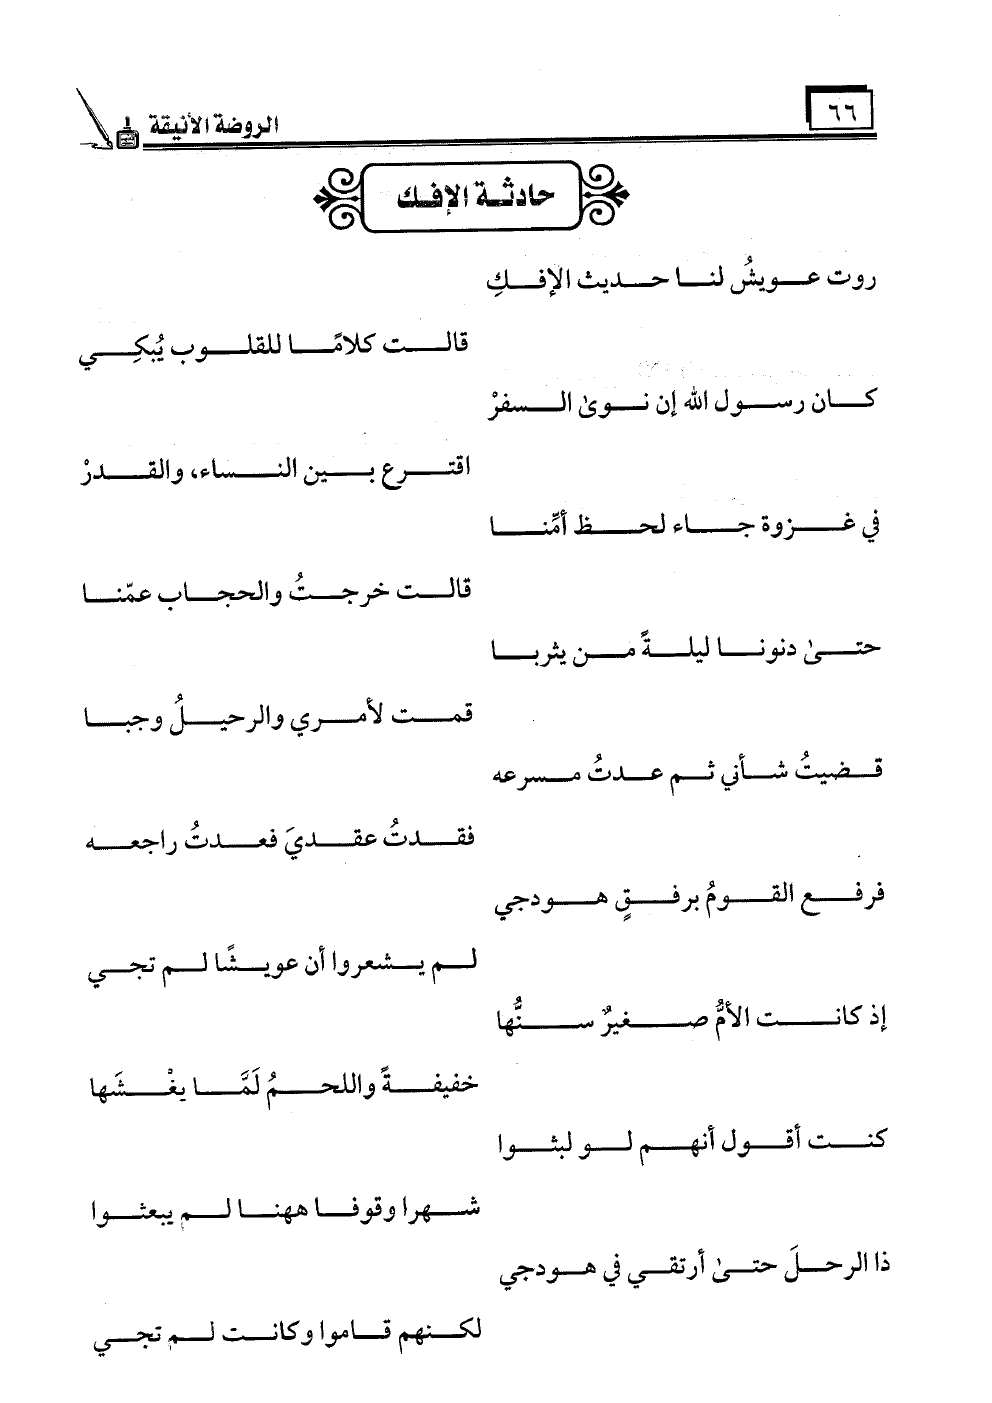 ٦٦
الروضة الأنيقة
حادثة الإفك
روت عويشُ لنا حديث الإفكِ
قالت كلامًا للقلوب يُبكِي
كان رسول الله إن نوىٰ السفرْ
اقترع بين النساء، والقدرْ
في غزوة جاء لحظ أمِّنا
قالت خرجتُ والحجاب عمّنا
حتىٰ دنونا ليلةً من يثربا
قمت لأمري والرحيلُ وجبا
قضيتُ شأني ثم عدتُ مسرعه
فقدتُ عقديَ فعدتُ راجعه
فرفع القومُ برفقٍ هودجي
لم يشعروا أن عويشًا لم تجي
إذ كانت الأمُّ صغيرٌ سنُّها
خفيفةً واللحمُ لَمَّا يغْشَها
كنت أقول أنهم لو لبثوا
شهرا وقوفا ههنا لم يبعثوا
ذا الرحلَ حتىٰ أرتقي في هودجي
لكنهم قاموا وكانت لم تجي